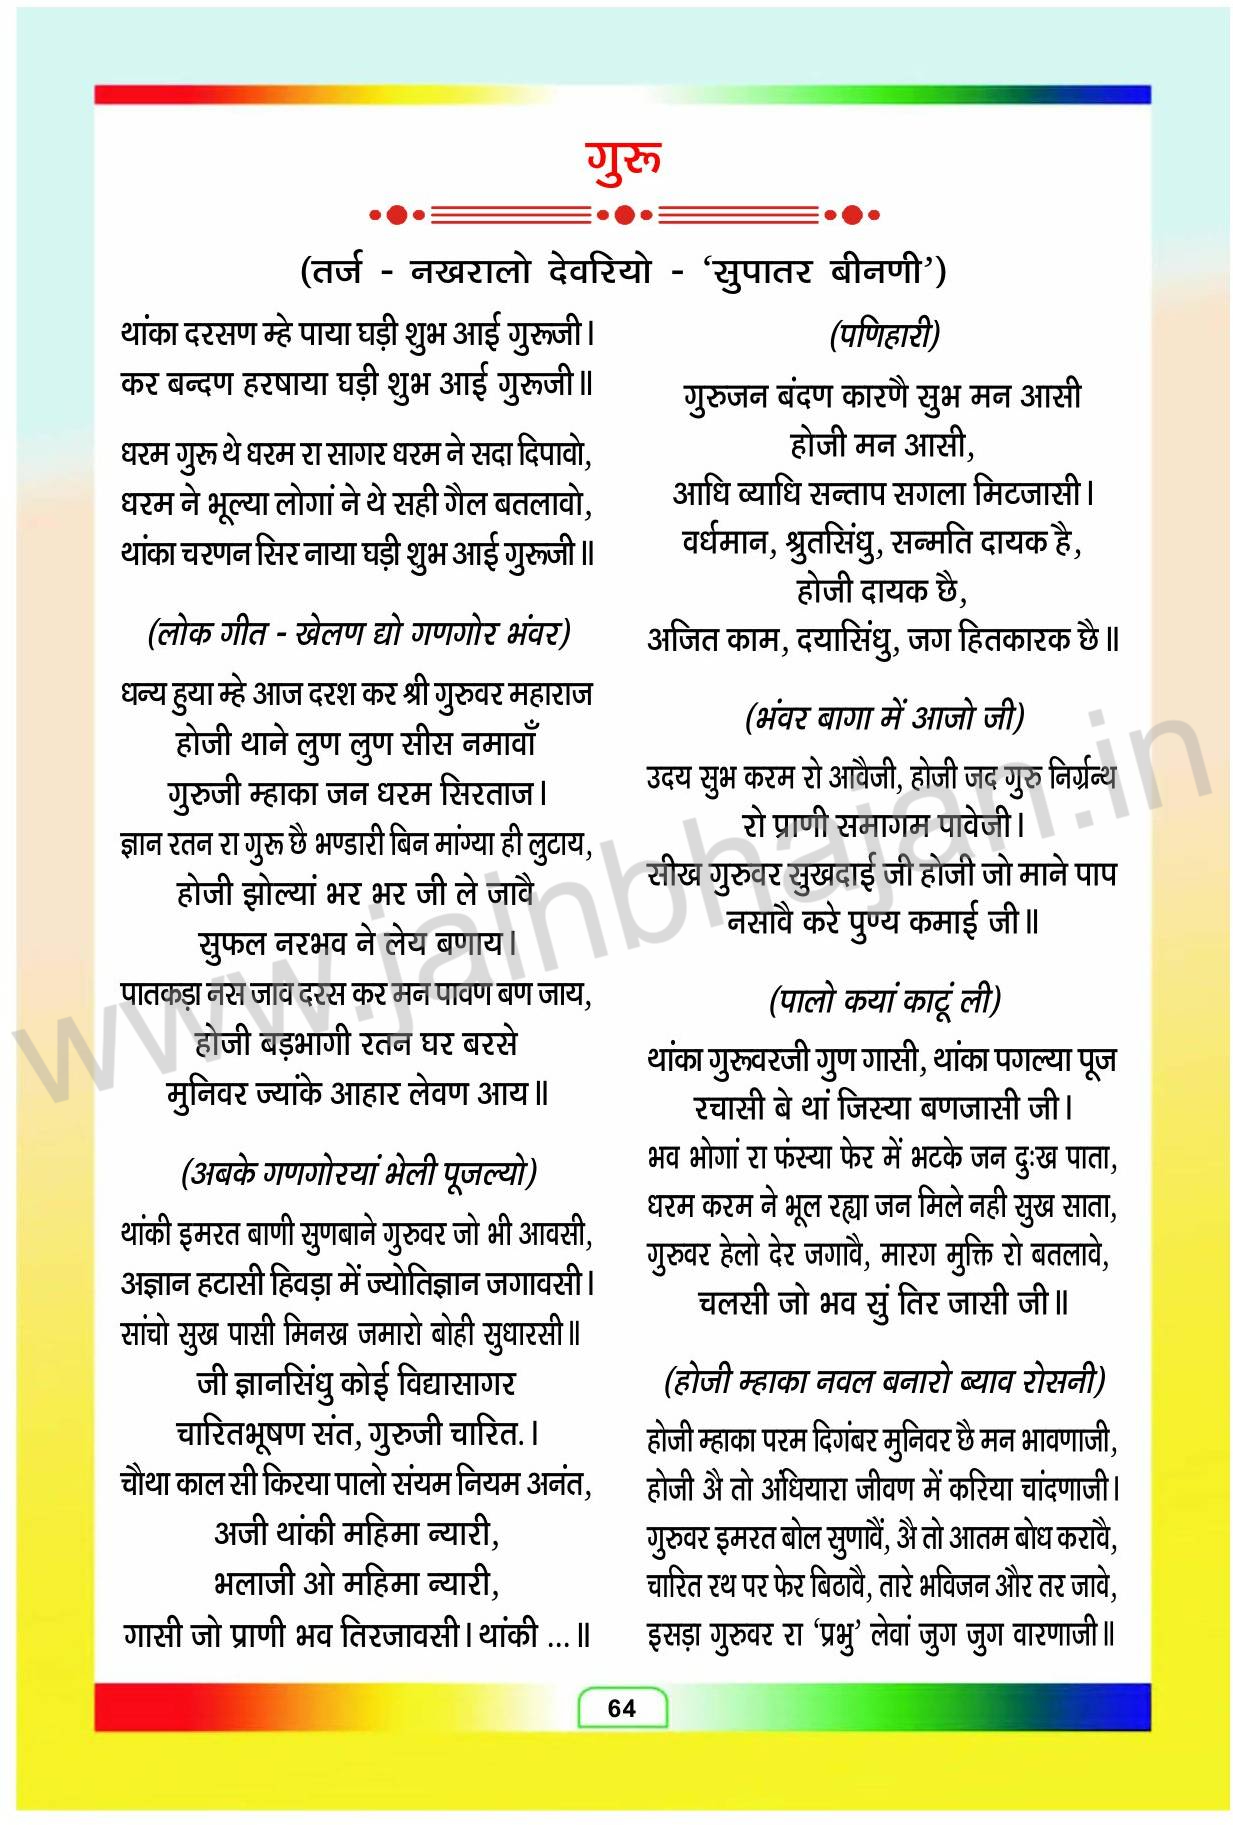 गुरू
(तर्ज - नखरालो देवरियो - ‘सुपातर बीनणी’)
थांका दरसण म्हे पाया घड़ी शुभ आई गुरूजी।
कर बन्दण हरषाया घड़ी शुभ आई गुरूजी॥
धरम गुरू थे धरम रा सागर धरम ने सदा दिपावो,
धरम ने भूल्या लोगां ने थे सही गैल बतलावो,
थांका चरणन सिर नाया घड़ी शुभ आई गुरूजी॥
(लोक गीत - खेलण द्यो गणगोर भंवर)
धन्य हुया म्हे आज दरश कर श्री गुरुवर महाराज
होजी थाने लुण लुण सीस नमावाँ
गुरुजी म्हाका जन धरम सिरताज।
ज्ञान रतन रा गुरू छै भण्डारी बिन मांग्या ही लुटाय,
होजी झोल्यां भर भर जी ले जावै
सुफल नरभव ने लेय बणाय।
पातकड़ा नस जाव दरस कर मन पावण बण जाय,
होजी बड़भागी रतन घर बरसे
मुनिवर ज्यांके आहार लेवण आय॥
(अबके गणगोरयां भेली पूजल्यो)
थांकी इमरत बाणी सुणबाने गुरुवर जो भी आवसी,
अज्ञान हटासी हिवड़ा में ज्योतिज्ञान जगावसी।
सांचो सुख पासी मिनख जमारो बोही सुधारसी॥
जी ज्ञानसिंधु कोई विद्यासागर
चारितभूषण संत, गुरुजी चारित.।
चौथा काल सी किरया पालो संयम नियम अनंत,
अजी थांकी महिमा न्यारी,
भलाजी ओ महिमा न्यारी,
गासी जो प्राणी भव तिरजावसी। थांकी ...॥
(पणिहारी)
गुरुजन बंदण कारणै सुभ मन आसी
होजी मन आसी,
आधि व्याधि सन्ताप सगला मिटजासी।
वर्धमान, श्रुतसिंधु, सन्मति दायक है,
होजी दायक छै,
अजित काम, दयासिंधु, जग हितकारक छै॥
(भंवर बागा में आजो जी)
उदय सुभ करम रो आवैजी, होजी जद गुरु निर्ग्रन्थ
रो प्राणी समागम पावेजी।
सीख गुरुवर सुखदाई जी होजी जो माने पाप
नसावै करे पुण्य कमाई जी॥
(पालो कयां काटूं ली)
थांका गुरूवरजी गुण गासी, थांका पगल्या पूज
रचासी बे थां जिस्या बणजासी जी।
भव भोगां रा फंस्या फेर में भटके जन दुःख पाता,
धरम करम ने भूल रह्या जन मिले नही सुख साता,
गुरुवर हेलो देर जगावै, मारग मुक्ति रो बतलावे,
चलसी जो भव सुं तिर जासी जी॥
(होजी म्हाका नवल बनारो ब्याव रोसनी)
होजी म्हाका परम दिगंबर मुनिवर छै मन भावणाजी,
होजी अै तो अंधियारा जीवण में करिया चांदणाजी।
गुरुवर इमरत बोल सुणावैं, अै तो आतम बोध करावै,
चारित रथ पर फेर बिठावै, तारे भविजन और तर जावे,
इसड़ा गुरुवर रा ‘प्रभु’ लेवां जुग जुग वारणाजी॥
www.jainbhajan.in
64